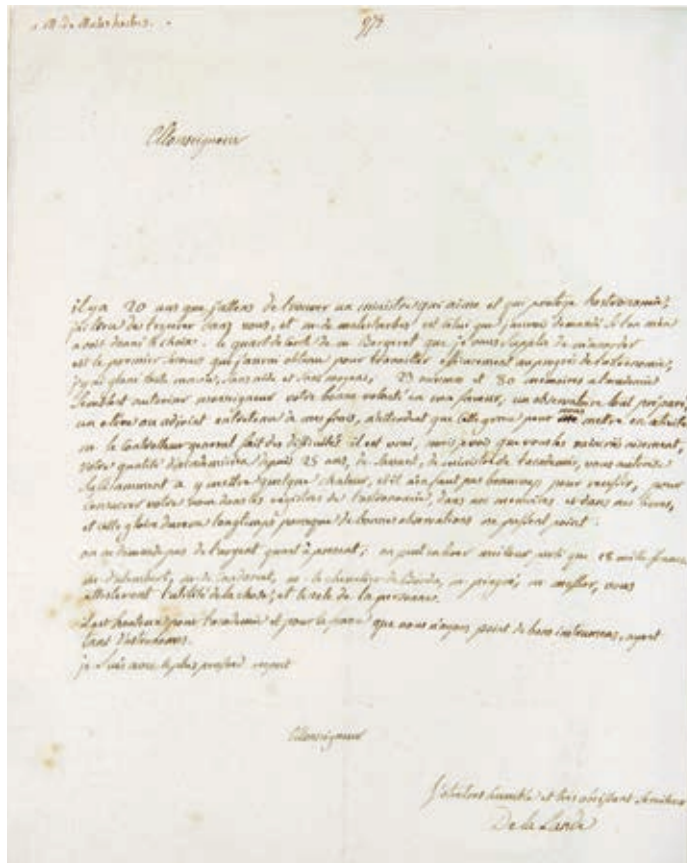 M. de Malesherbes.
Monseigneur
il y a 20 ans que j'attens de trouver un ministre qui aime et qui protège l'astronomie;
je viens de le trouver dans vous, et m. de malesherbes est celui que j'aurois demandé si l'on m'en
avoit donné le choix. le quart de cercle de m. Bergeret que je vous supplie de m'accorder
est le premier secours que j'aurai obtenu pour travailler efficacement au progrès de l'astronomie;
sans aide et sans moyens, 23 et 80 mémoires
semblent autoriser monseigneur votre bonne volonté en ma faveur, un observatoire tout préparé,
un élève ou adjoint entretenu de mes frais, n'attendent que cette grace pour mettre en activité
m. le Controlleur general fait des difficultés il est vrai, mais je vois que vous les vaincrés aisement,
votre qualité d'academicien depuis 25 ans, de savant, de ministre de l'academie, vous autorise
suffisamment a y mettre quelque chaleur, et il n'en faut pas beaucoup pour reussir, pour
consacrer votre nom dans les registres de l'astronomie, dans nos memoires et dans nos livres,
et cette gloire durera longtemps parceque de bonnes observations ne passent point.
on ne demande pas de l'argent quant à present; on peut en tirer meilleur parti que 18 mille francs
m. d'alembert, m. de Condorcet, m. le chevalier de m. pingré, m. messier, vous
attesteront l'utilité de la chose, et le zele de la personne.
il est honteux pour l'academie et pour le que nous n'ayons point de bons instrumens, ayant
tant d'astronomes.
je suis avec le plus profond respect
Monseigneur
Votre très humble et très obéissant serviteur
De la Lande